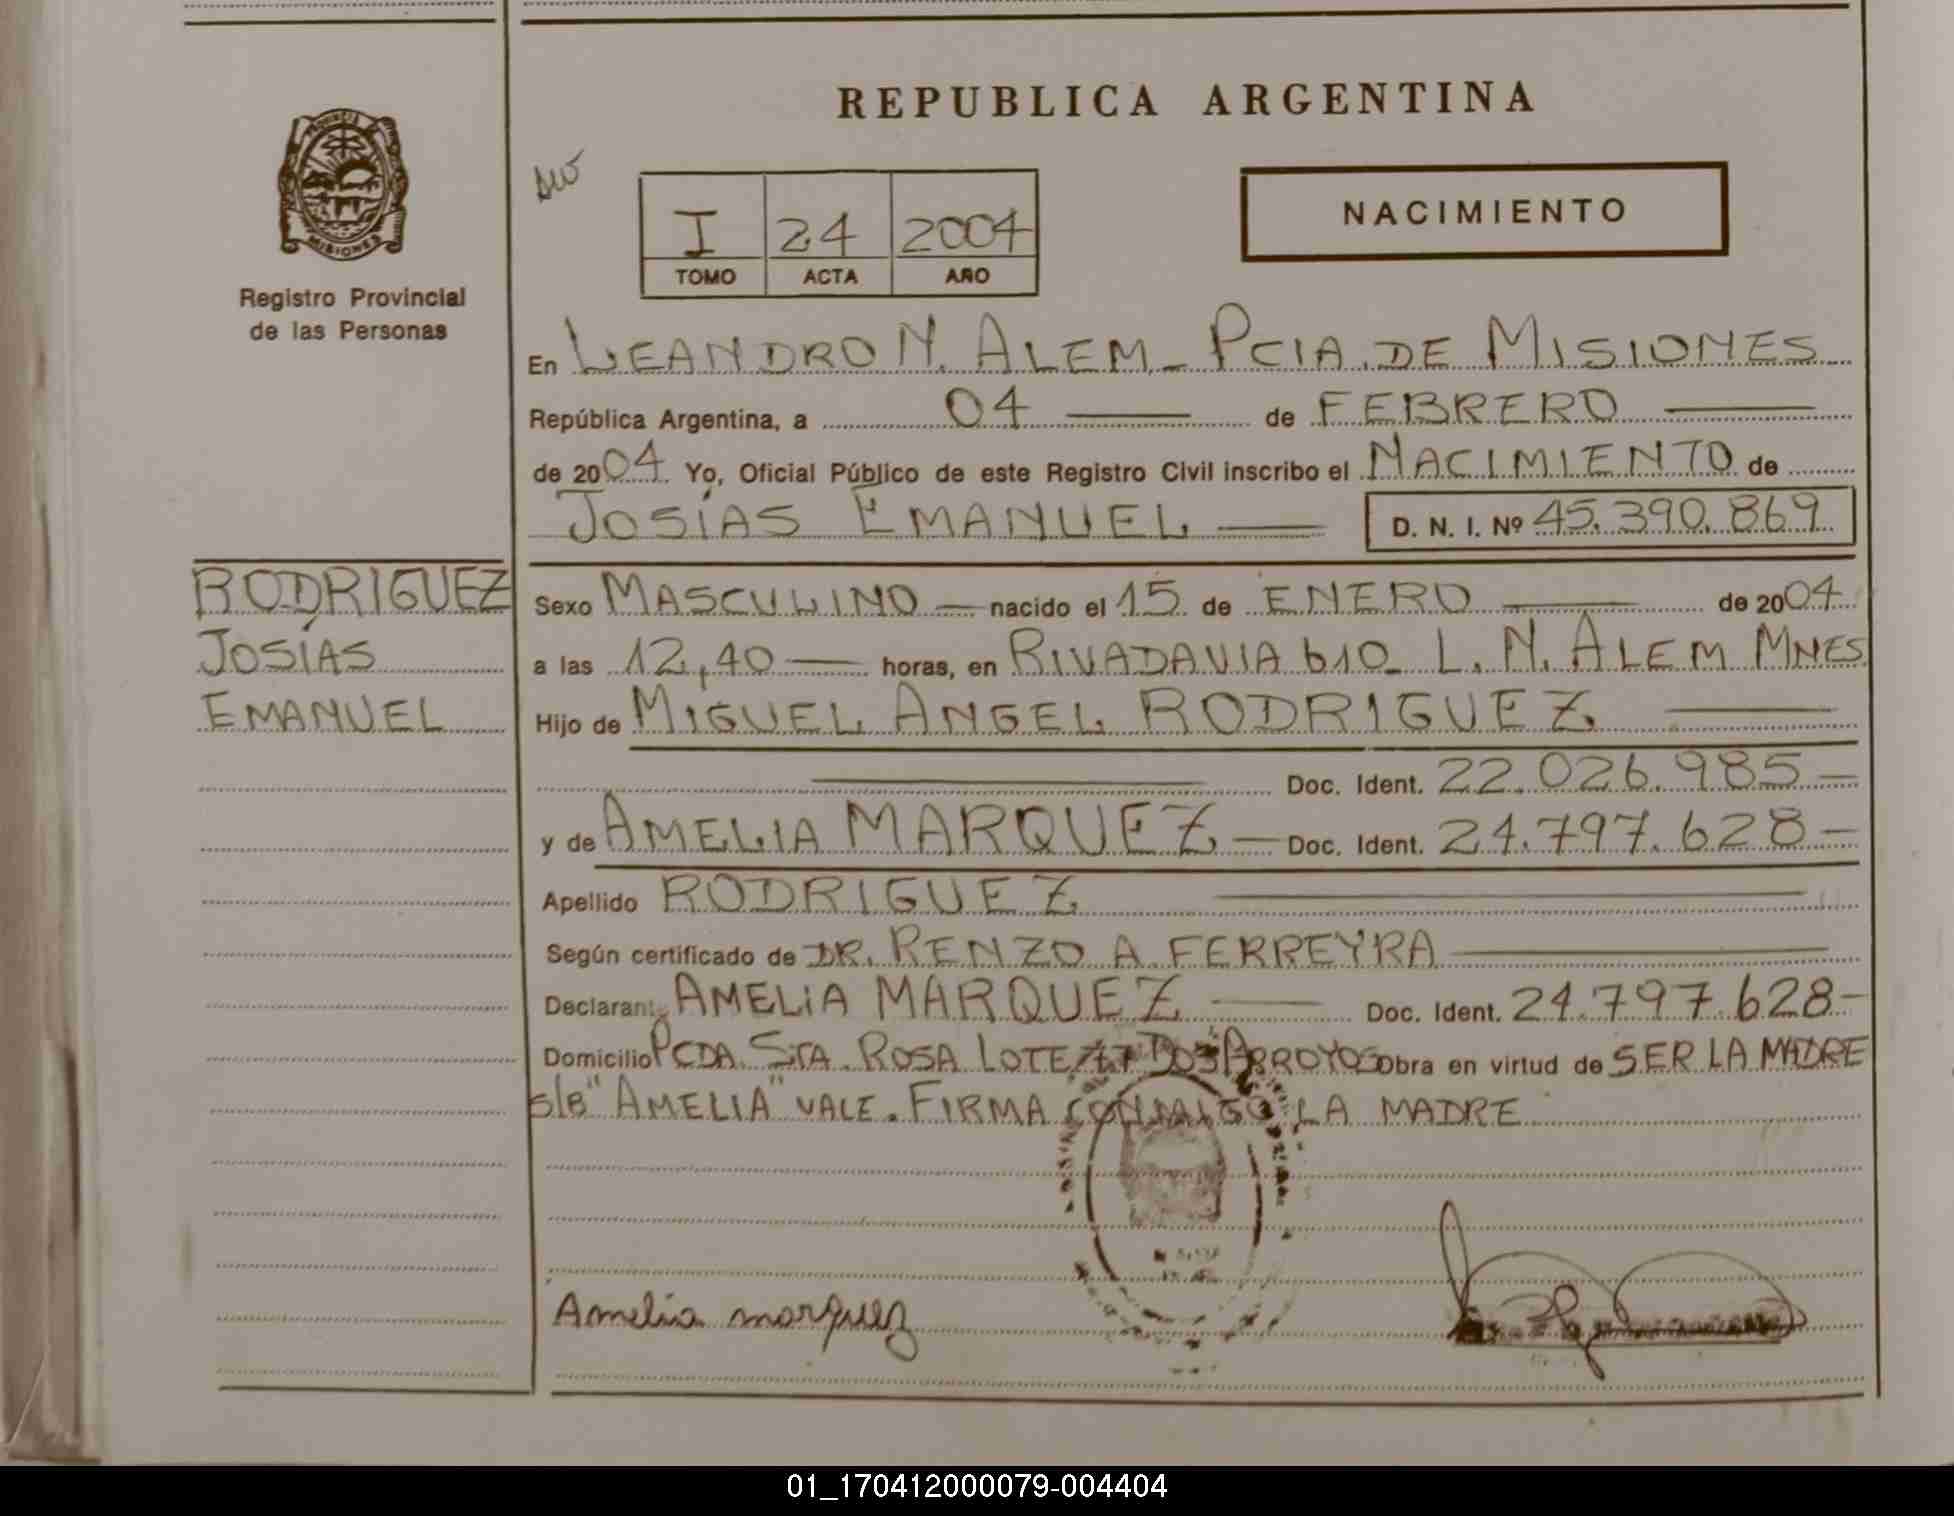 REPUBLICA ARGENTINA
PROVINCIA DE
MISIONES
Registro Provincial
de las Personas
I 24 2004
TOMO ACTA AÑO
NACIMIENTO
En LEANDRO N. ALEM - PCIA. DE MISIONES
República Argentina, a 04 de FEBRERO
de 2004 Yo, Oficial Público de este Registro Civil inscribo el NACIMIENTO de
JOSÍAS EMANUEL D. N. I. Nº 45.390.869
RODRIGUEZ
JOSÍAS
EMANUEL
Sexo MASCULINO nacido el 15 de ENERO de 2004
a las 12,40 horas, en RIVADAVIA 610 - L. N. ALEM MNES
Hijo de MIGUEL ANGEL RODRIGUEZ
Doc. Ident. 22.026.985
y de AMELIA MARQUEZ Doc. Ident. 24.797.628
Apellido RODRIGUEZ
Según certificado de DR. RENZO A FERREYRA
Declarante AMELIA MARQUEZ Doc. Ident. 24.797.628
Domicilio PCDA. STA. ROSA LOTE DOS ARROYOS Obra en virtud de SER LA MADRE
S/B "AMELIA" VALE. FIRMA CONMIGO LA MADRE
Amelia marquez
01_170412000079-004404